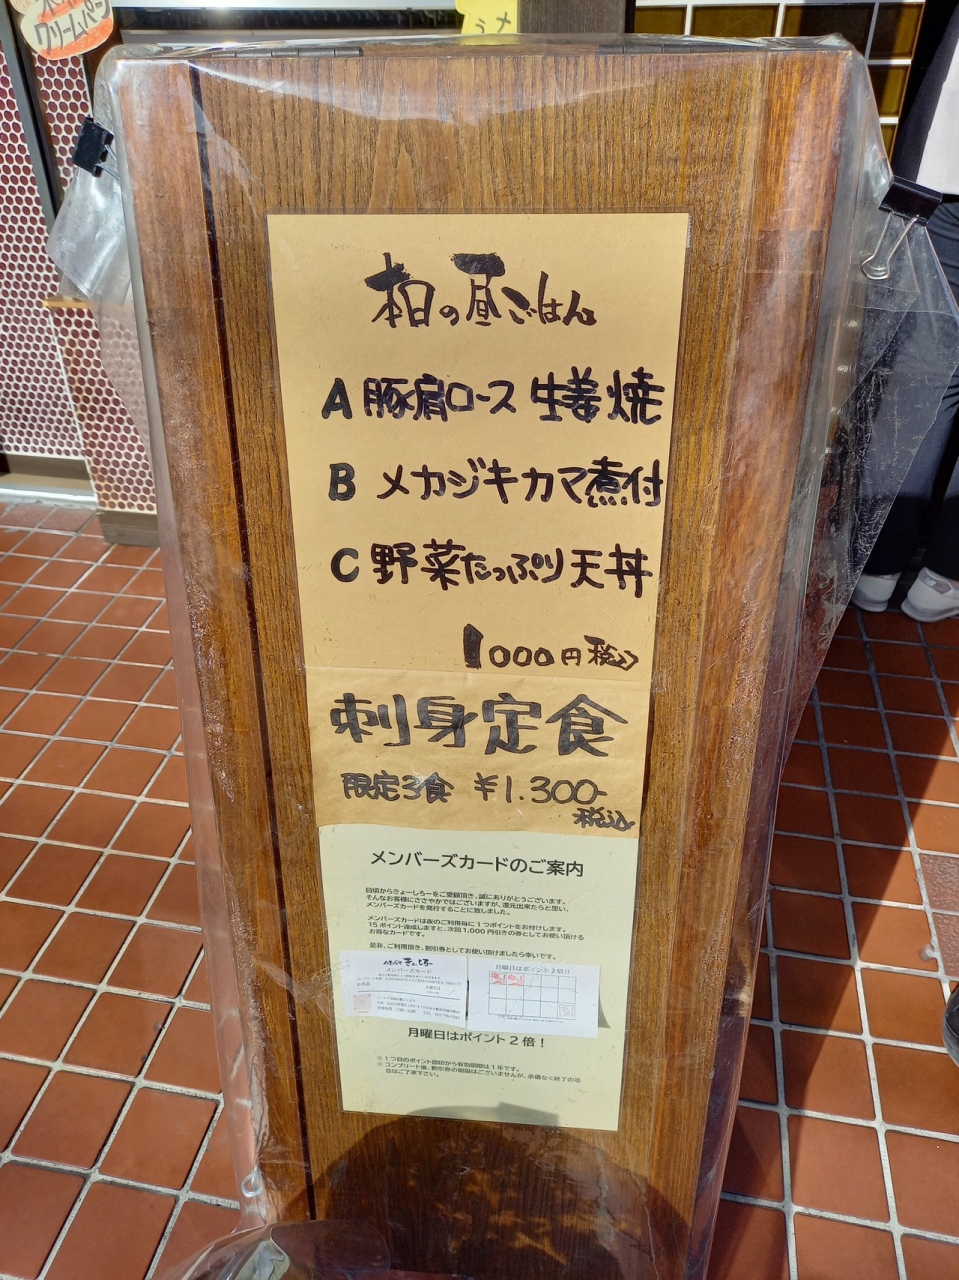 クリームパン
本日の昼ごはん
A 豚肩ロース 生姜焼
B メカジキカマ煮付
C 野菜たっぷり天丼
1000円税込
刺身定食
限定3食 ¥1.300-
税込
メンバーズカードのご案内
日頃からきょーしろーをご愛顧頂き、誠にありがとうございます。
そんなお客様にささやかではございますが、還元出来たらと思い、
メンバーズカードを発行することに致しました。
メンバーズカードは夜のご利用毎に1つポイントをお付けします。
15ポイント達成しますと、次回1,000円引きの券としてお使い頂ける
お得なカードです。
是非、ご利用頂き、割引券としてお使い頂けましたら幸いです。
きょーしろー
メンバーズカード
月曜日はポイント2倍!!
月曜日はポイント2倍!
※1つ目のポイント押印から有効期限は1年です。
※コンプリート後、割引券の期限はございませんが、余儀なく終了の場
合はご了承下さい。